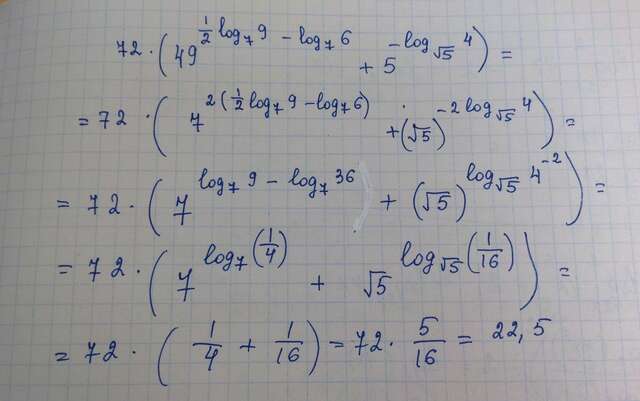 72 · (49^(½ log₇9 − log₇6) + 5^(−log_√5 4)) =
= 72 · (7^(2(½ log₇9 − log₇6)) + (√5)^(−2 log_√5 4)) =
= 72 · (7^(log₇9 − log₇36) + (√5)^(log_√5 4⁻²)) =
= 72 · (7^(log₇(1/4)) + √5^(log_√5(1/16))) =
= 72 · (1/4 + 1/16) = 72 · 5/16 = 22,5